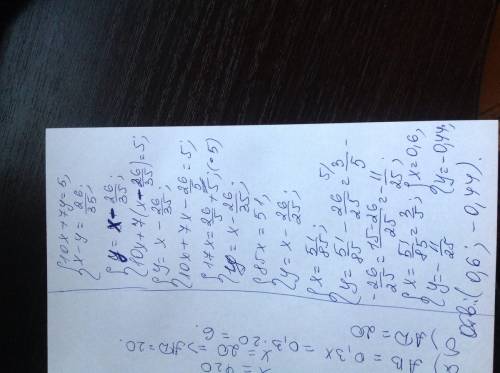 {10x+7y=5,
{x-y=26/35;
{y=x-26/35;
{10x+7(x-26/35)=5;
{y=x-26/35;
{10x+7x-26/5=5;
{17x=26/5+5;(·5)
{y=x-26/35;
{85x=51,
{y=x-26/35;
{x=51/85;
{y=51/85-26/25=3/5-
-26/25=15-26/25=-11/25;
{x=51/85=3/5; {x=0,6,
{y=-11/25 {y=-0,44,
Отв:(0,6; -0,44).
x = 420
AB = 0,3x = 0,3·20 = 6.
x = 20 => AD=20.
AD = 20